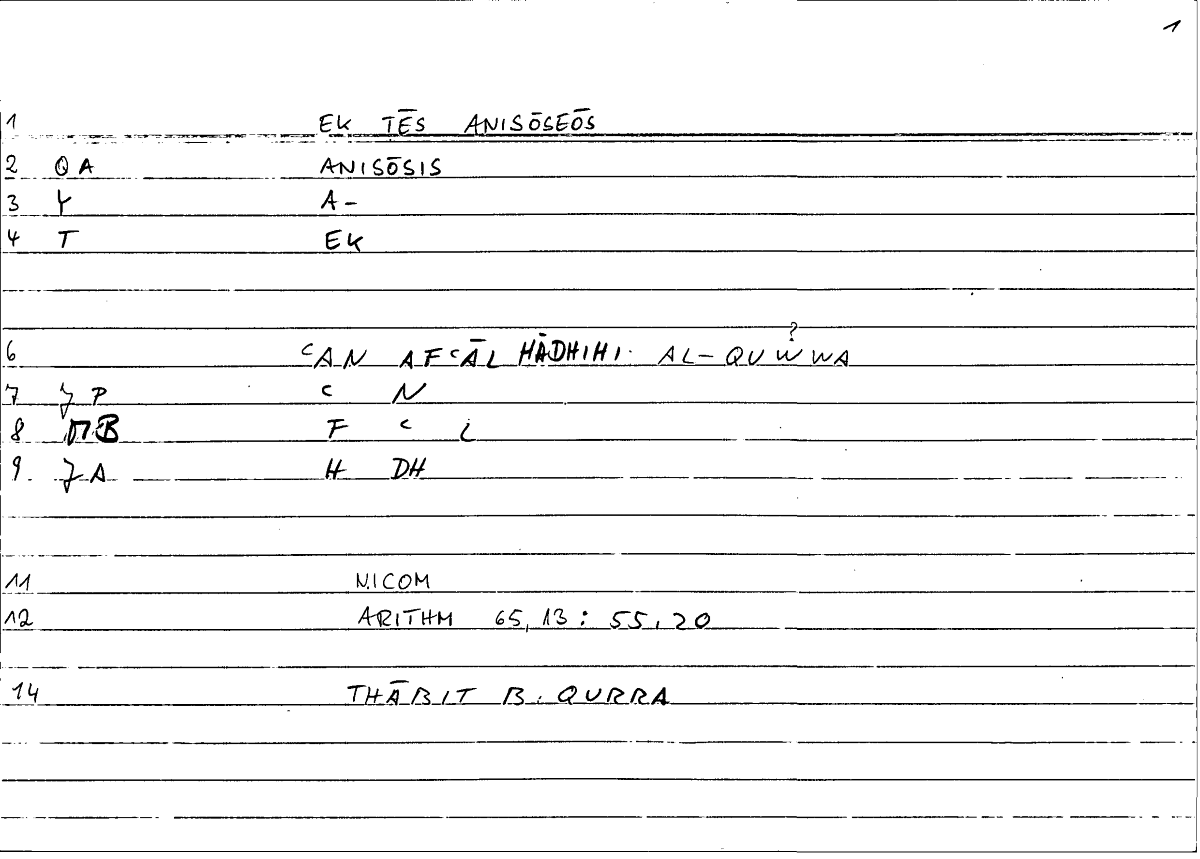 1
1 EK TĒS ANISŌSEŌS
2 QA ANISŌSIS
3 A-
4 T EK
?
6 ʿAN AFʿĀL HĀDHIHI. AL-QUWWA
7 P ʿ N
8 B F ʿ L
9. A H DH
11 NICOM
12 ARITHM 65,13: 55,20
14 THĀBIT B. QURRA